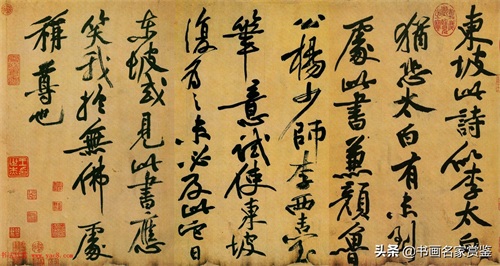 東坡此詩似李太白
猶恐太白有未到
處此書兼顏魯
公楊少師李西臺
筆意試使東坡
復為之未必及此它日
東坡或見此書應
笑我於無佛處
稱尊也
头条 @书画名家赏鉴